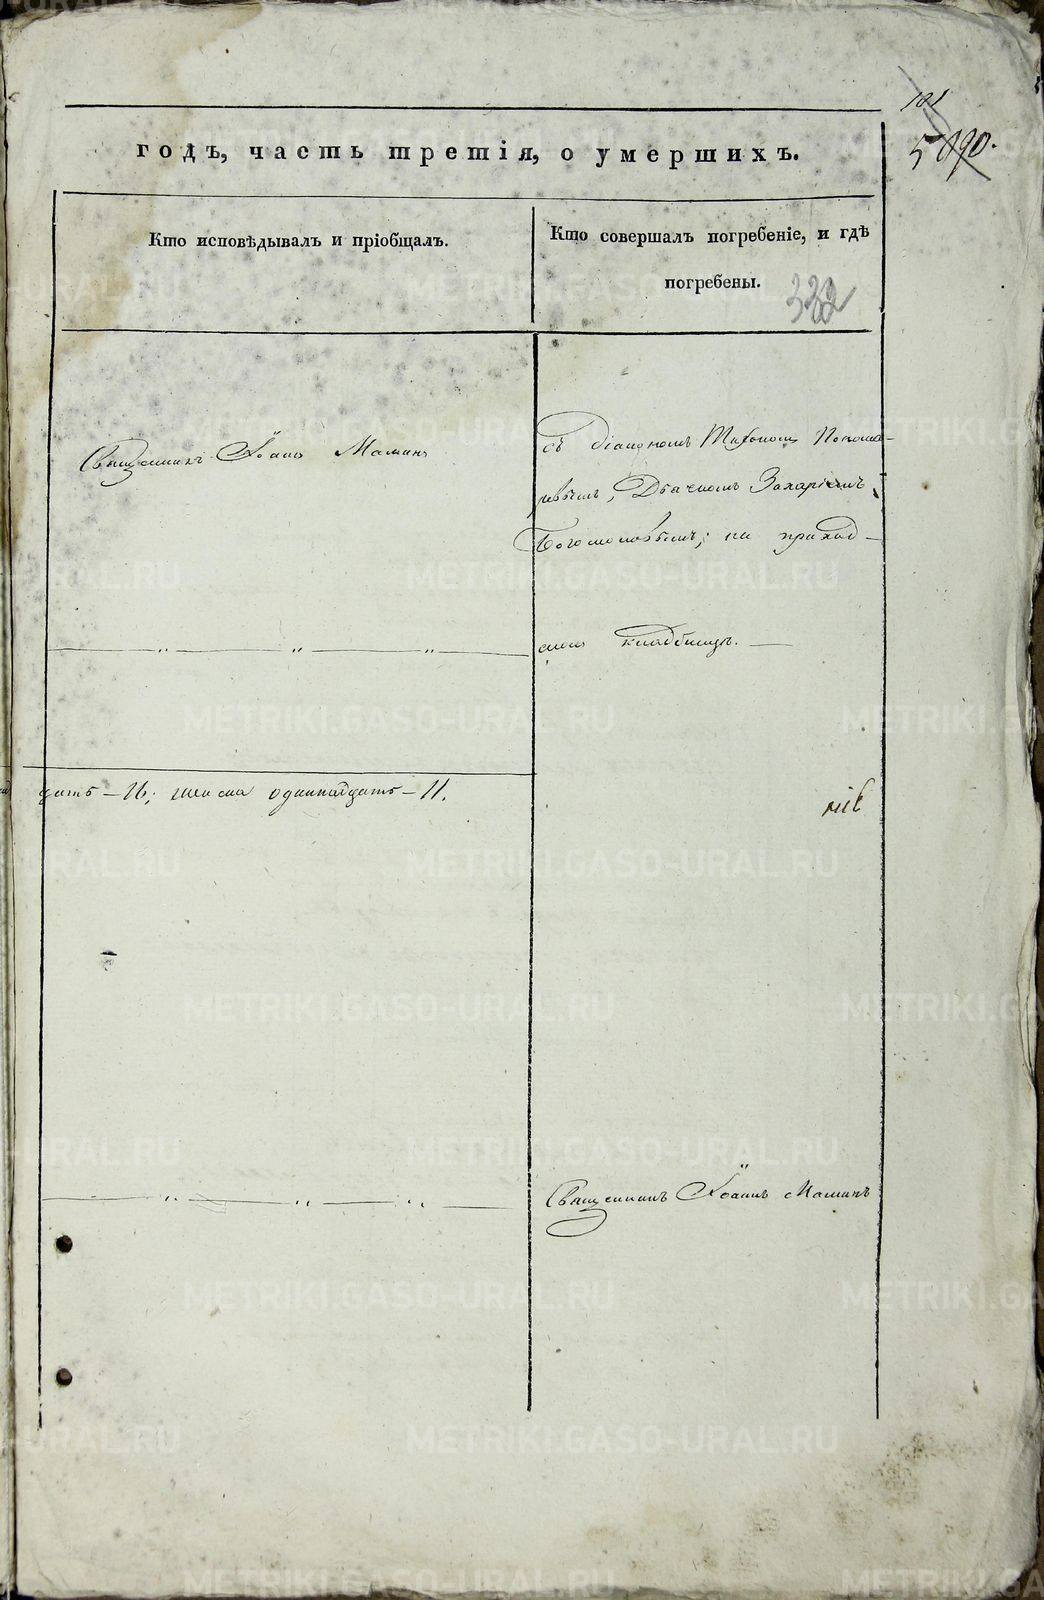 годъ, часть третія, о умершихъ.
Кто исповѣдывалъ и пріобщалъ.
Кто совершалъ погребеніе, и гдѣ
погребены.
332
101
Священникъ Іоаннъ Маминъ
съ діакономъ Тихономъ
Дьячкомъ Захаріемъ
Богомоловымъ; на приход-
скомъ кладбищѣ. —
цать – 16; женска одиннадцать – 11.
Священникъ Іоаннъ Маминъ
METRIKI.GASO-URAL.RU